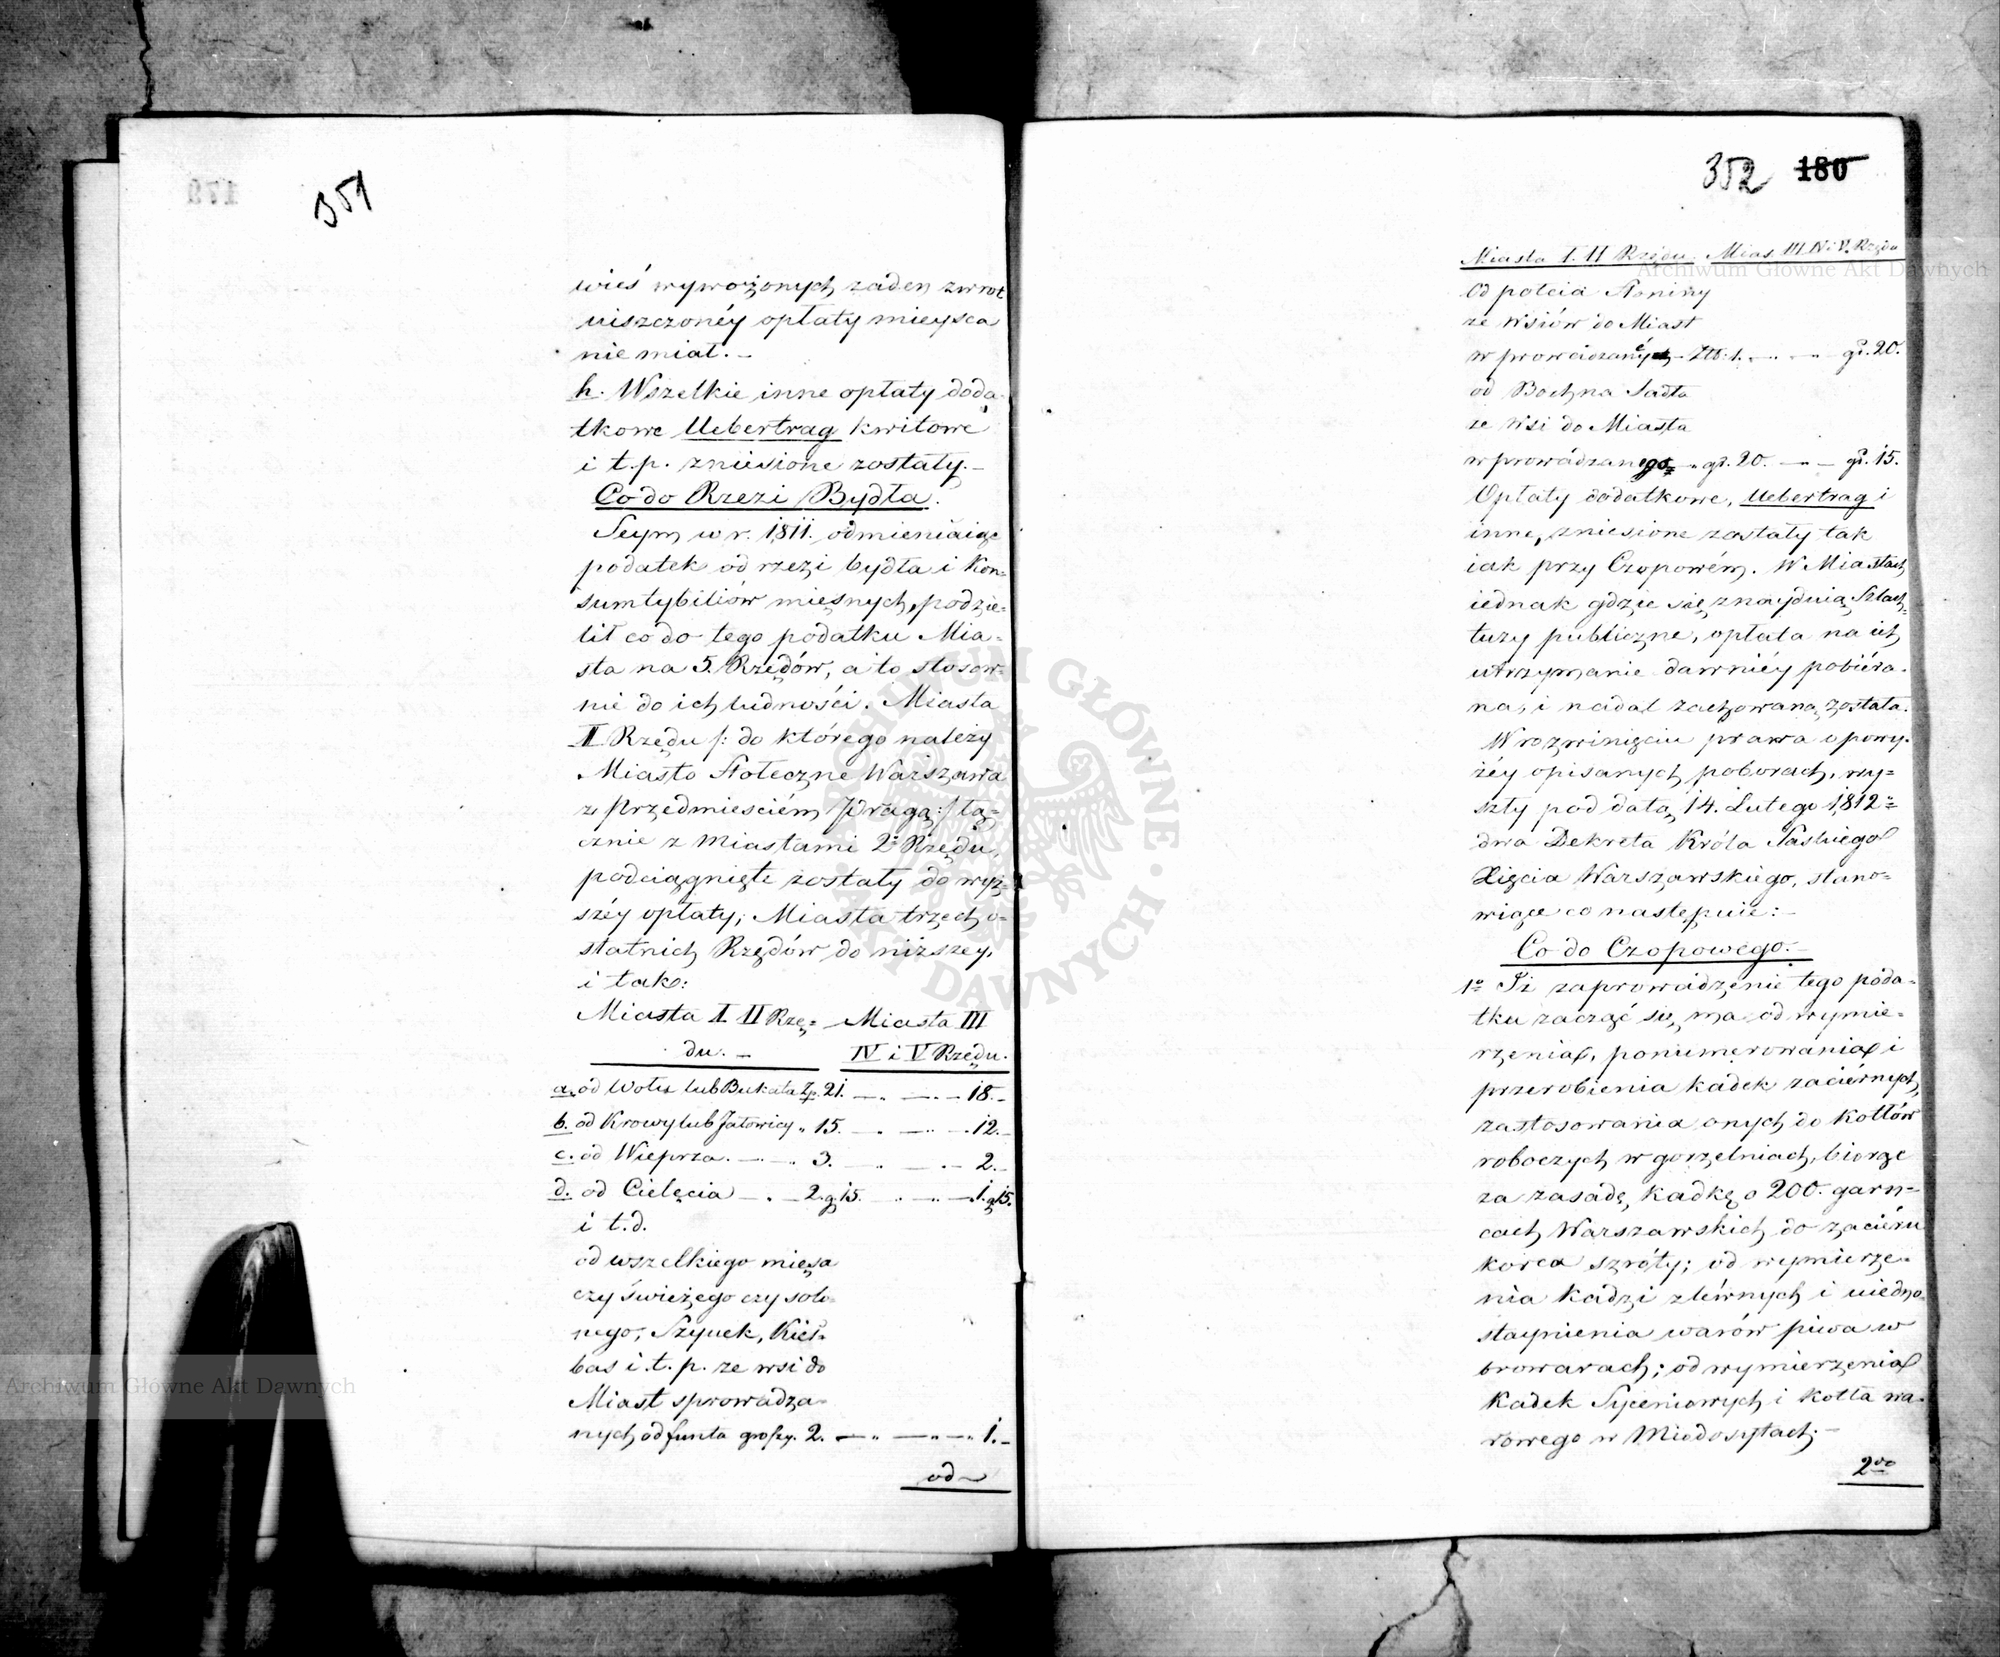 351
wieś wywożonych żaden zwrot
uiszczonéy opłaty mieysca
nie miał. –
h. Wszelkie inne opłaty doda-
tkowe Uebertrag kwitowe
i t.p. zniesione zostały. –
Co do Rzezi Bydła.
Seym w r. 1811. odmieniaiąc
podatek od rzezi bydła i kon=
sumtybiliów mięsnych, podzie=
lił co do tego podatku Mia=
sta na 5. Rzędów, a to stosow=
nie do ich ludności. Miasta
I Rzędu /: do którego należy
Miasto Stołeczne Warszawa
z Przedmieściém Pragą :/ łą=
cznie z Miastami 2º Rzędu,
podciągnięte zostały do wyż=
széy opłaty; Miasta trzech o=
statnich Rzędów do niższey,
i tak:
Miasta I. II Rzę= Miasta III
du. – IV i V Rzędu.
a. od Wołu lub Bukata Zp. 21. – 18. –
b. od Krowy lub Jałowicy „ 15. – 12. –
c. od Wieprza. – 3. – 2. –
d. od Cielęcia – 2. g 15. – 1. g 15.
i t.d.
od wszelkiego mięsa
czy świeżego czy solo=
nego, Szynek, Kieł=
bas i.t.p. ze wsi do
Miast sprowadza=
nych od funta groszy. 2. – 1. –
od
352 180
Miasta I. II Rzędu. Mias. III IV i V. Rzędu
Od połcia Słoniny
ze Wsiów do Miast
wprowadzanéy – Złl: 1. – gr. 20.
od Bochna Sadła
ze Wsi do Miasta
wprowadzanego „ gr. 20. – gr. 15.
Opłaty dodatkowe, Uebertrag i
inne, zniesione zostały tak
iak przy Czopowém. W Miastach
iednak gdzie się znayduią Szlach=
tuzy publiczne, opłata na ich
utrzymanie dawniéy pobiéra=
na, i nadal zachowaną została.
W rozwinięciu prawa o powy=
żéy opisanych poborach, wy=
szły pod datą 14. Lutego 1812º
dwa Dekreta Króla Saskiego
Xięcia Warszawskiego, stano=
wiące co następuie: –
Co do Czopowego. –
1º Iż zaprowadzenie tego poda=
tku zacząć się ma od wymie=
rzenia, ponumerowania i
przerobienia kadek zaciérnych,
zastosowania onych do kotłów
roboczych w gorzelniach, biorąc
za zasadę, kadkę o 200. garn=
cach Warszawskich do zaciéru
korca szróty; od wymierze=
nia kadzi zléwnych i uiedno=
staynienia warów piwa w
browarach; od wymierzenia
Kadek Syceniowych i kotła wa=
rowego w Miodosytach. –
2do
Archiwum Główne Akt Dawnych
Archiwum Główne Akt Dawnych
ARCHIWUM GŁÓWNE AKT DAWNYCH